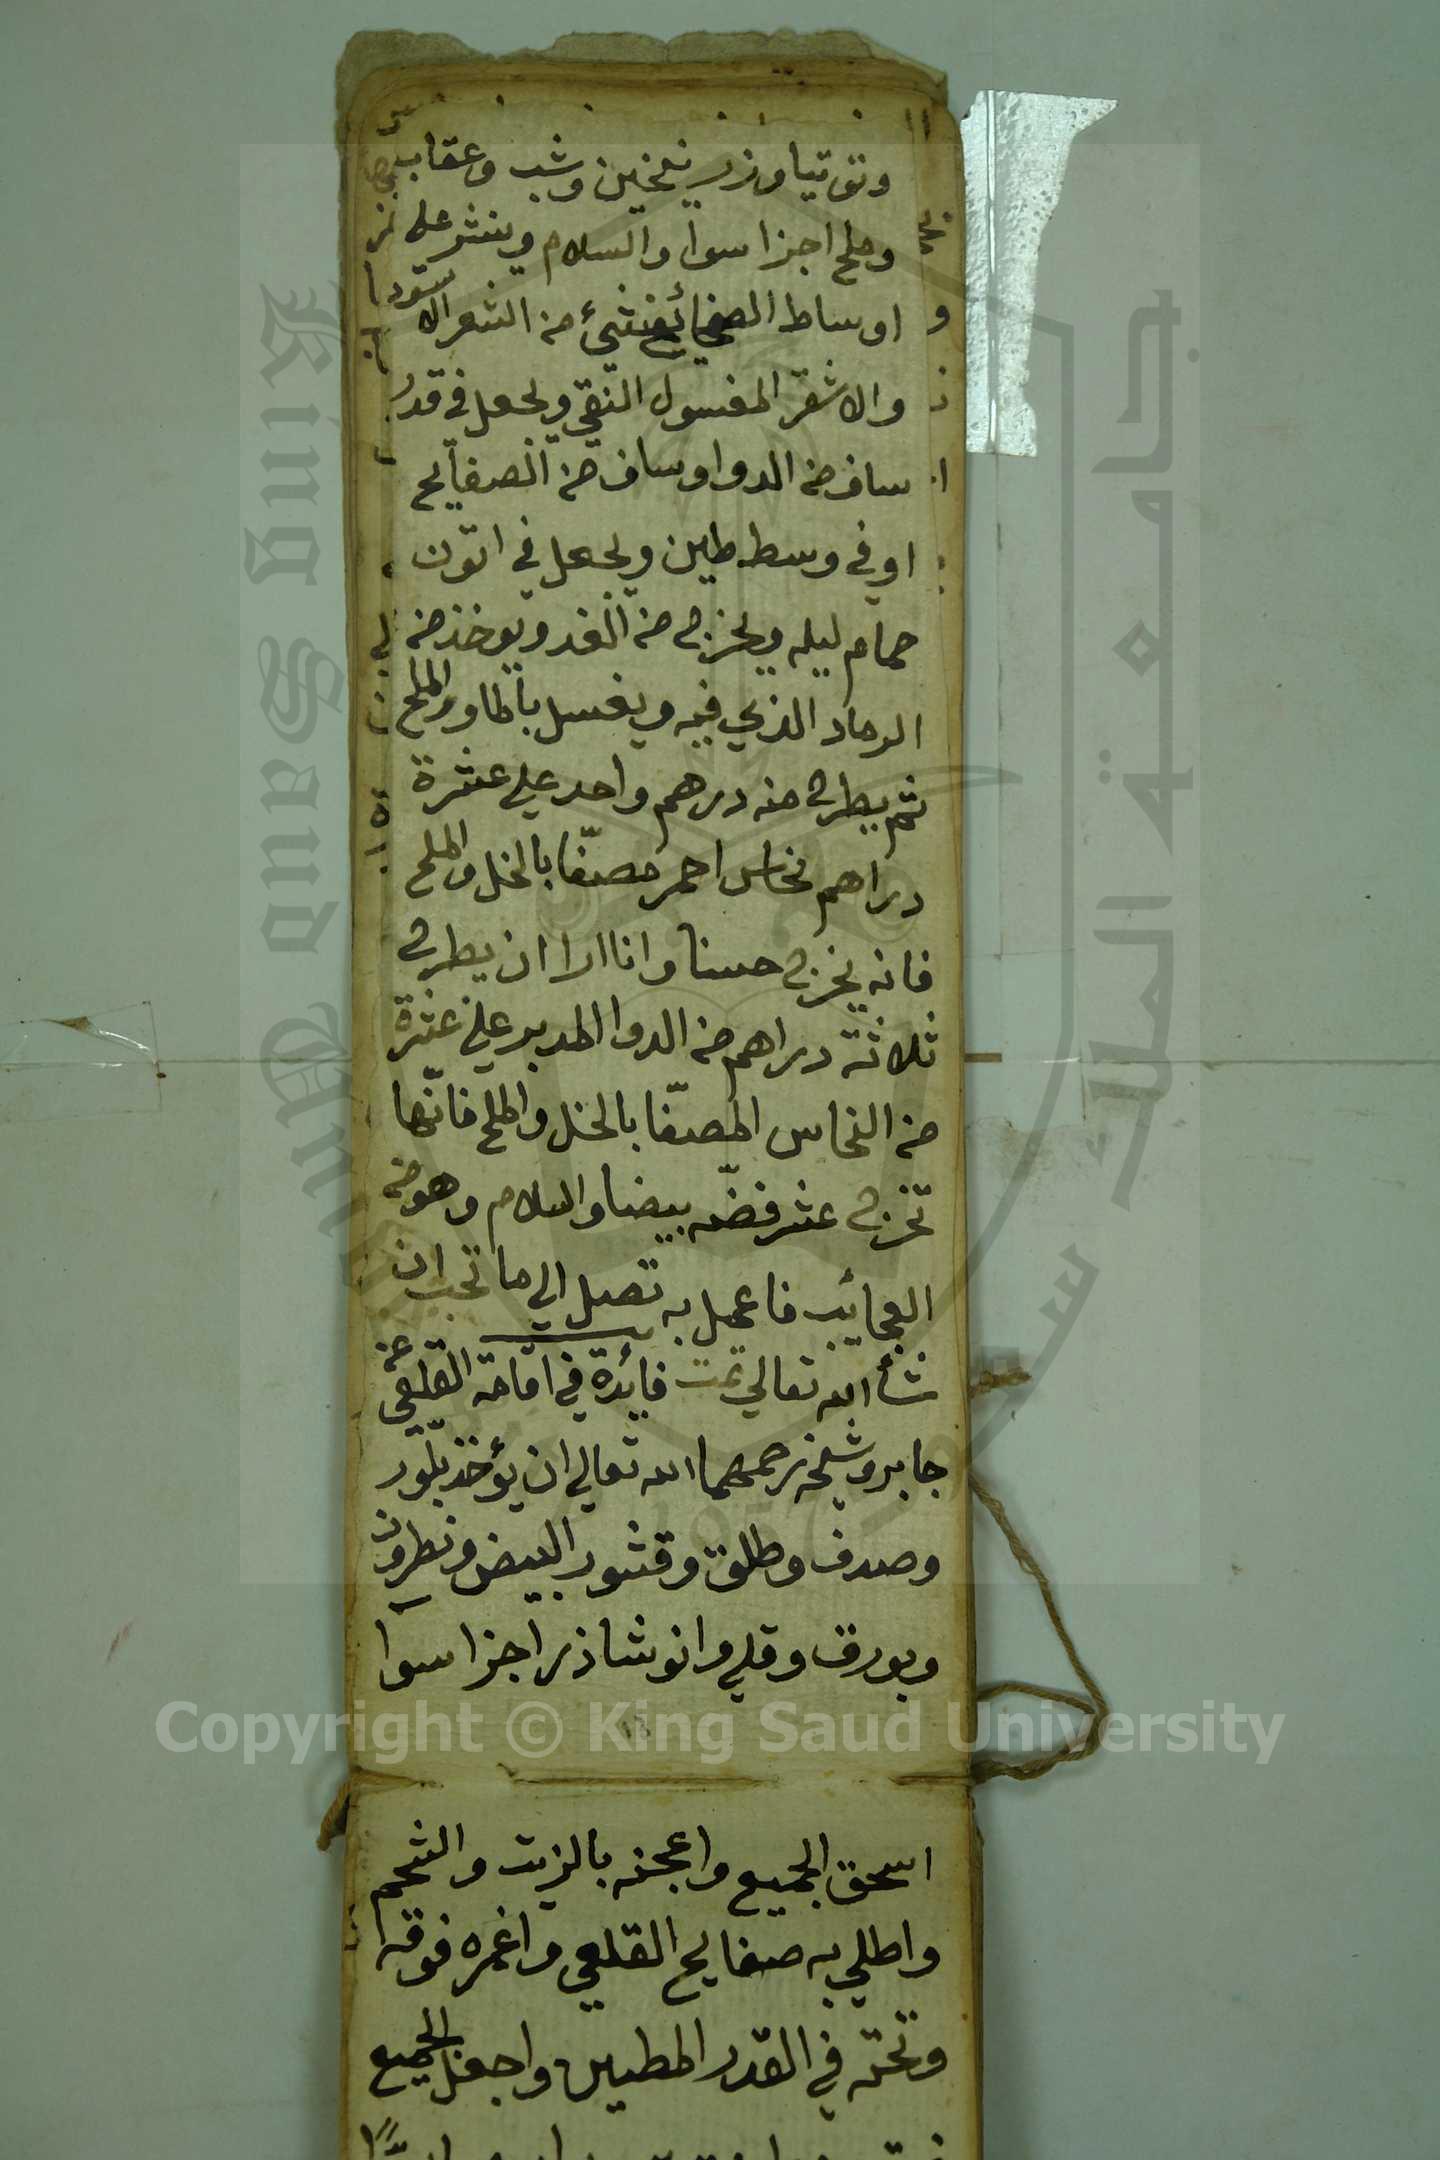 وتوتيا وزرنيخين وشب وعقاب
وملح اجزا سوا والسلام وينثر علي
اوساط الصفايح شيء من الشعر الاسود
والاشقر المغسول النقي ويجعل في قدر
ساف من الدوا وساف من الصفايح
او في وسط طين ويجعل في اتون
حمام ليله ويخرج من الغد ويوخذ من
الرماد الذي فيه ويغسل بالما والملح
ثم يطرح منه درهم واحد علي عشرة
دراهم نحاس احمر مصفّا بالخل والملح
فانه يخرج حسنا وانا ارا ان يطرح
ثلاثة دراهم من الدوا المدبر علي عشرة
من النحاس المصفّا بالخل والملح فانّها
تخرج عشر فضّه بيضا والسلام وهو من
العجايب فاعمل به تصل الي ما تحب ان
شأ الله تعالي تمت فائدة في اقامة القلعي عن
جابر وشيخه رحمهما الله تعالي ان يؤخذ بلّور
وصدف وطلق وقشور البيض ونطرون
وبورق وقلي وانوشاذر اجزا سوآ
Copyright © King Saud University
اسحق الجميع واعجنه بالزيت والشحم
واطلي به صفايح القلعي واغمره فوقه
وتحته في القدر المطين واجعل الجميع
King Saud University
جامعة الملك سعود
1957